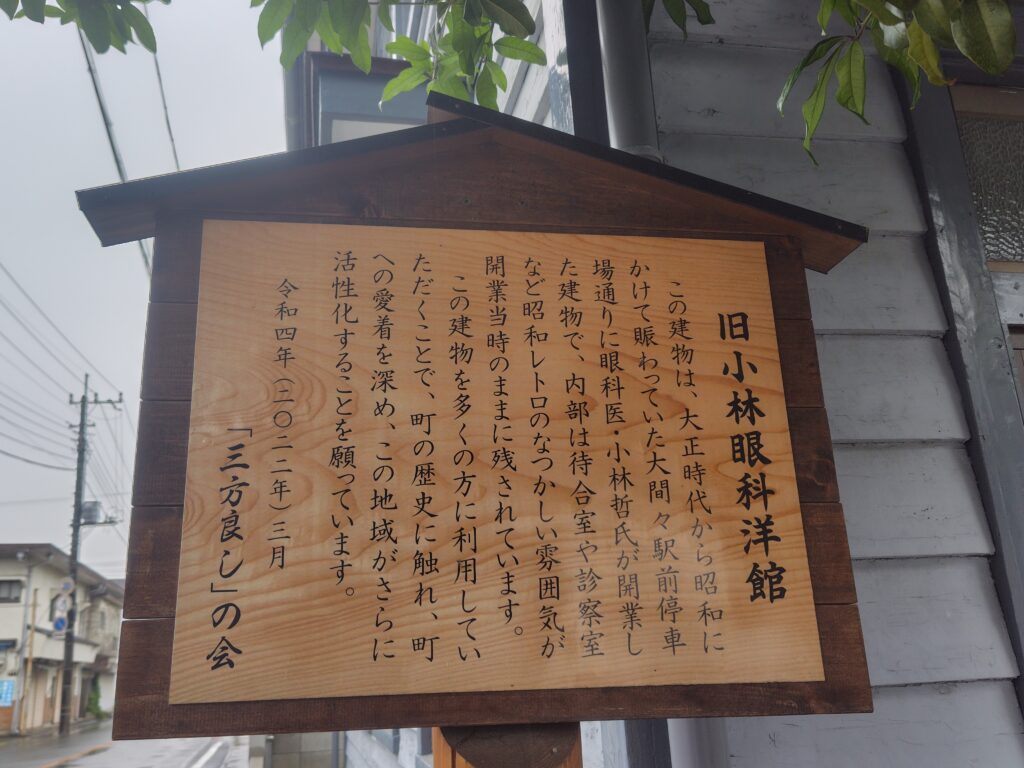 旧小林眼科洋館
この建物は、大正時代から昭和に
かけて賑わっていた大間々駅前停車
場通りに眼科医・小林哲氏が開業し
た建物で、内部は待合室や診察室
など昭和レトロのなつかしい雰囲気が
開業当時のままに残されています。
この建物を多くの方に利用してい
ただくことで、町の歴史に触れ、町
への愛着を深め、この地域がさらに
活性化することを願っています。
令和四年(二〇二二年)三月
「三方良し」の会